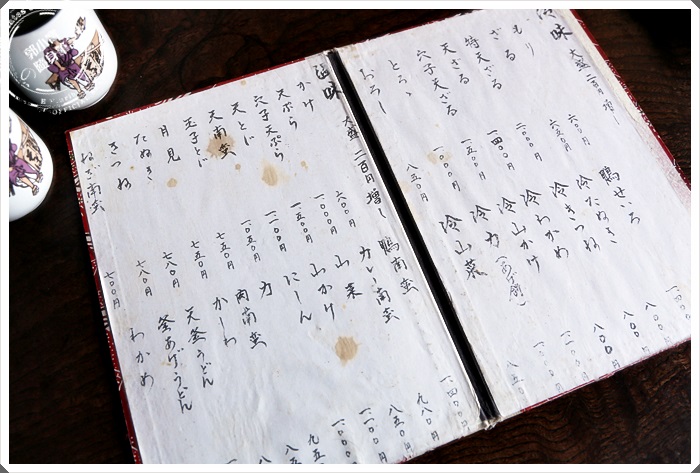 冷味 大盛二百円増し
もり 六〇〇円
ざる 六五〇円
天ざる 一〇〇〇円
特天ざる 一四〇〇円
穴子天ざる 一五〇〇円
とろろ
おろし 八五〇円
鴨せいろ
冷たぬき
冷きつね
冷わかめ
冷山かけ
冷力
冷山菜
温味 大盛二百円増し
かけ 六〇〇円
天ぷら 一〇〇〇円
穴子天ぷら 一五〇〇円
天とじ 一一〇〇円
天南蛮 一〇五〇円
玉子とじ 七五〇円
月見 七五〇円
たぬき 七八〇円
きつね 七八〇円
ねぎ南蛮 七〇〇円
鴨南蛮 一四〇〇円
カレー南蛮 九八〇円
山菜 八五〇円
山かけ
にしん
力
肉南蛮
かしわ
天釜うどん
釜あげうどん
わかめ